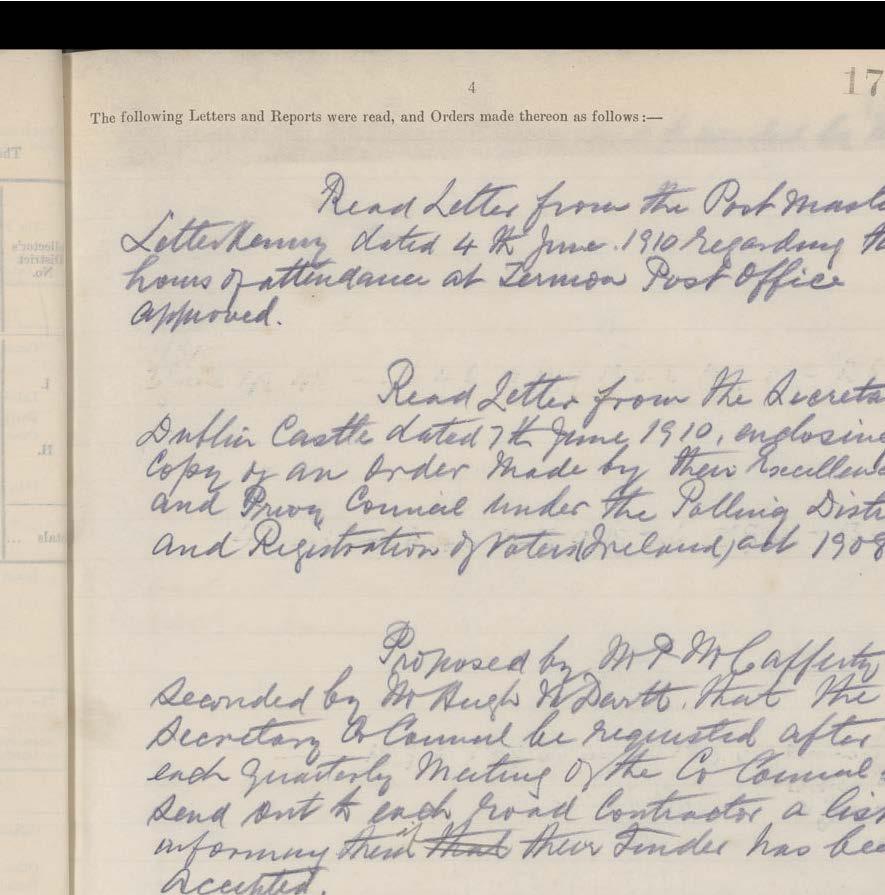 4
17
The following Letters and Reports were read, and Orders made thereon as follows:—
Read Letter from the Post Maste
Letterkenny dated 4th June. 1910 regarding th
hours of attendance at Termon Post Office
approved.
Read Letter from the Secreta
Dublin Castle dated 7th June, 1910, enclosing
Copy of an Order Made by their Excellenc
and Privy Council under the Polling Distr
and Registration of Voters (Ireland) act 1908
Proposed by Mr P McCafferty
Seconded by Mr Hugh McDevitt. that the
Secretary Co Council be requested after
each Quarterly Meeting of the Co Council
send out to each road Contractor a list
informing them if that their Tender has bee
accepted.
ollector's
District
No.
I.
II.
tals ...